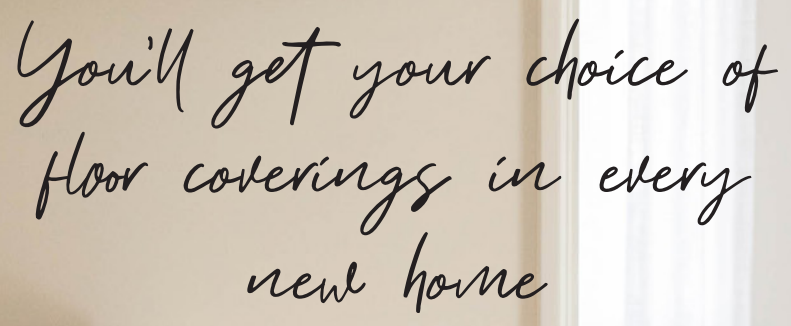 You'll get your choice of
floor coverings in every
new home